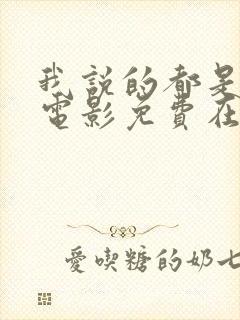 我說的都是
電影免費在
愛喫糖的奶七